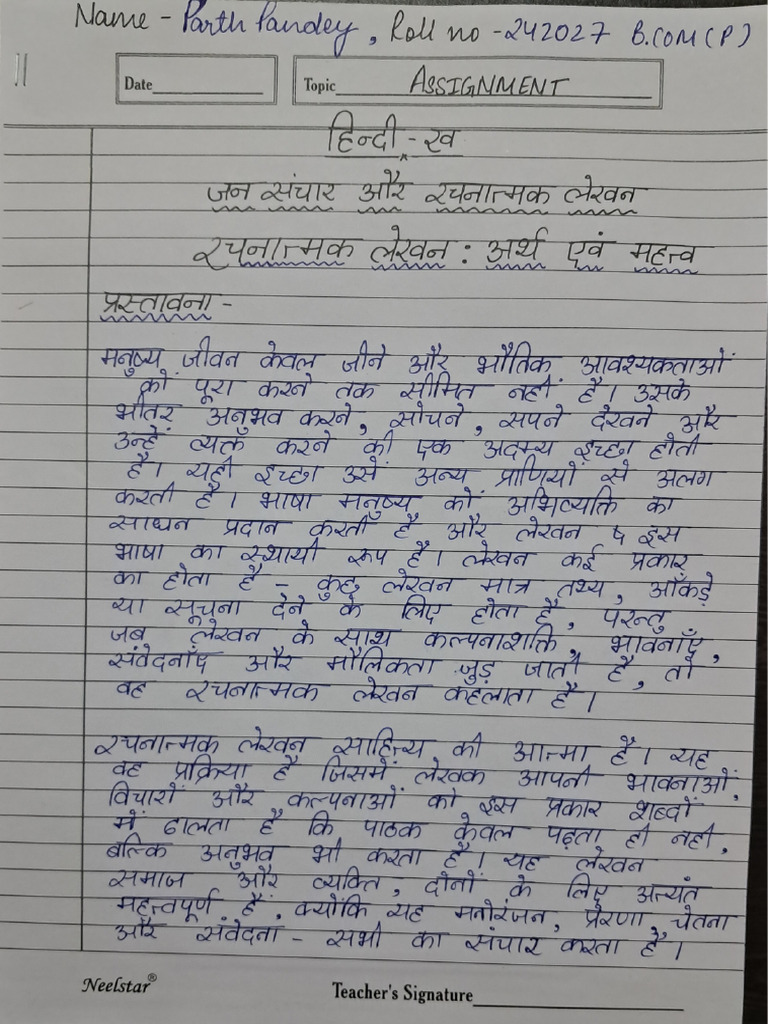 Name - Parth Pandey, Roll no - 242027 B.COM(P)
Date
Topic ASSIGNMENT
हिन्दी - ख
जन संचार और रचनात्मक लेखन
रचनात्मक लेखन : अर्थ एवं महत्व
प्रस्तावना -
मनुष्य जीवन केवल जीने और भौतिक आवश्यकताओं
को पूरा करने तक सीमित नहीं है। उसके
भीतर अनुभव करने, सोचने, सपने देखने और
उन्हें व्यक्त करने की एक अदम्य इच्छा होती
है। यही इच्छा उसे अन्य प्राणियों से अलग
करती है। भाषा मनुष्य को अभिव्यक्ति का
साधन प्रदान करती है और लेखन इस
भाषा का स्थायी रूप है। लेखन कई प्रकार
का होता है - कुछ लेखन मात्र तथ्य, आँकड़े
या सूचना देने के लिए होता है, परन्तु
जब लेखन के साथ कल्पनाशक्ति, भावनाएँ,
संवेदनाएँ और मौलिकता जुड़ जाती है, तो
वह रचनात्मक लेखन कहलाता है।
रचनात्मक लेखन साहित्य की आत्मा है। यह
वह प्रक्रिया है जिसमें लेखक आपनी भावनाओं,
विचारों और कल्पनाओं को इस प्रकार शब्दों
में ढालता है कि पाठक केवल पढ़ता ही नहीं,
बल्कि अनुभव भी करता है। यह लेखन
समाज और व्यक्ति, दोनों के लिए अत्यंत
महत्वपूर्ण है, क्योंकि यह मनोरंजन, प्रेरणा, चेतना
और संवेदना - सभी का संचार करता है।
Neelstar®
Teacher's Signature